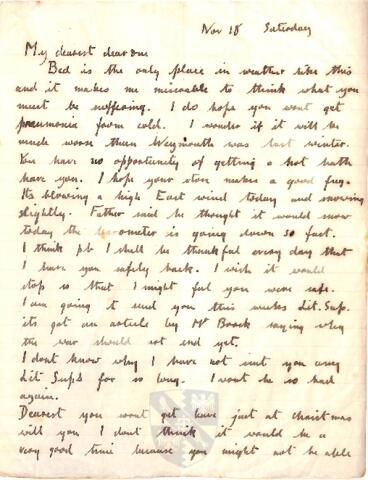 Nov 18 Saturday
My dearest dear one
Bed is the only place in weather like this
and it makes me miserable to think what you
must be suffering. I do hope you wont get
pneumonia from cold. I wonder if it will be
much worse than Weymouth was last winter.
You have no opportunity of getting a hot bath
have you. I hope your stove makes a good fug.
Its blowing a high East wind today and snowing
slightly. Father said he thought it would snow
today the barometer is going down so fast.
I think pb I shall be thankful every day that
I have you safely back. I wish it would
stop so that I might feel you were safe.
I am going to send you this weeks Lit. Sup.
its got an article by Mr Brock saying why
the war should not end yet.
I dont know why I have not sent you any
Lit. Sups for so long. I wont be so bad
again.
Dearest you wont get leave just at Christmas
will you I dont think it would be a
very good time because you might not be able